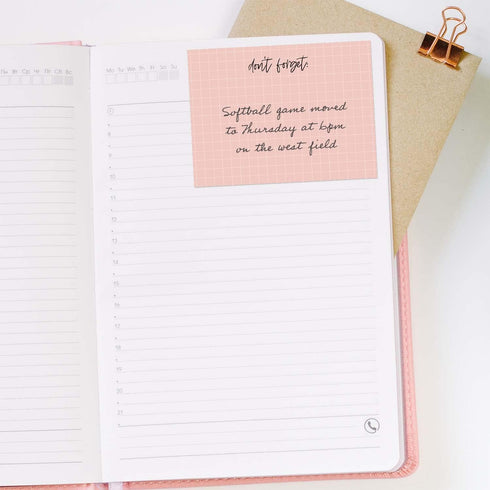 Пн Вт Ср Чт Пт Сб Вс
Mo Tu We Th Fr Sa Su
don't forget:
Softball game moved
to Thursday at 6pm
on the west field
11
12
13
14
15
16
17
18
19
20
21